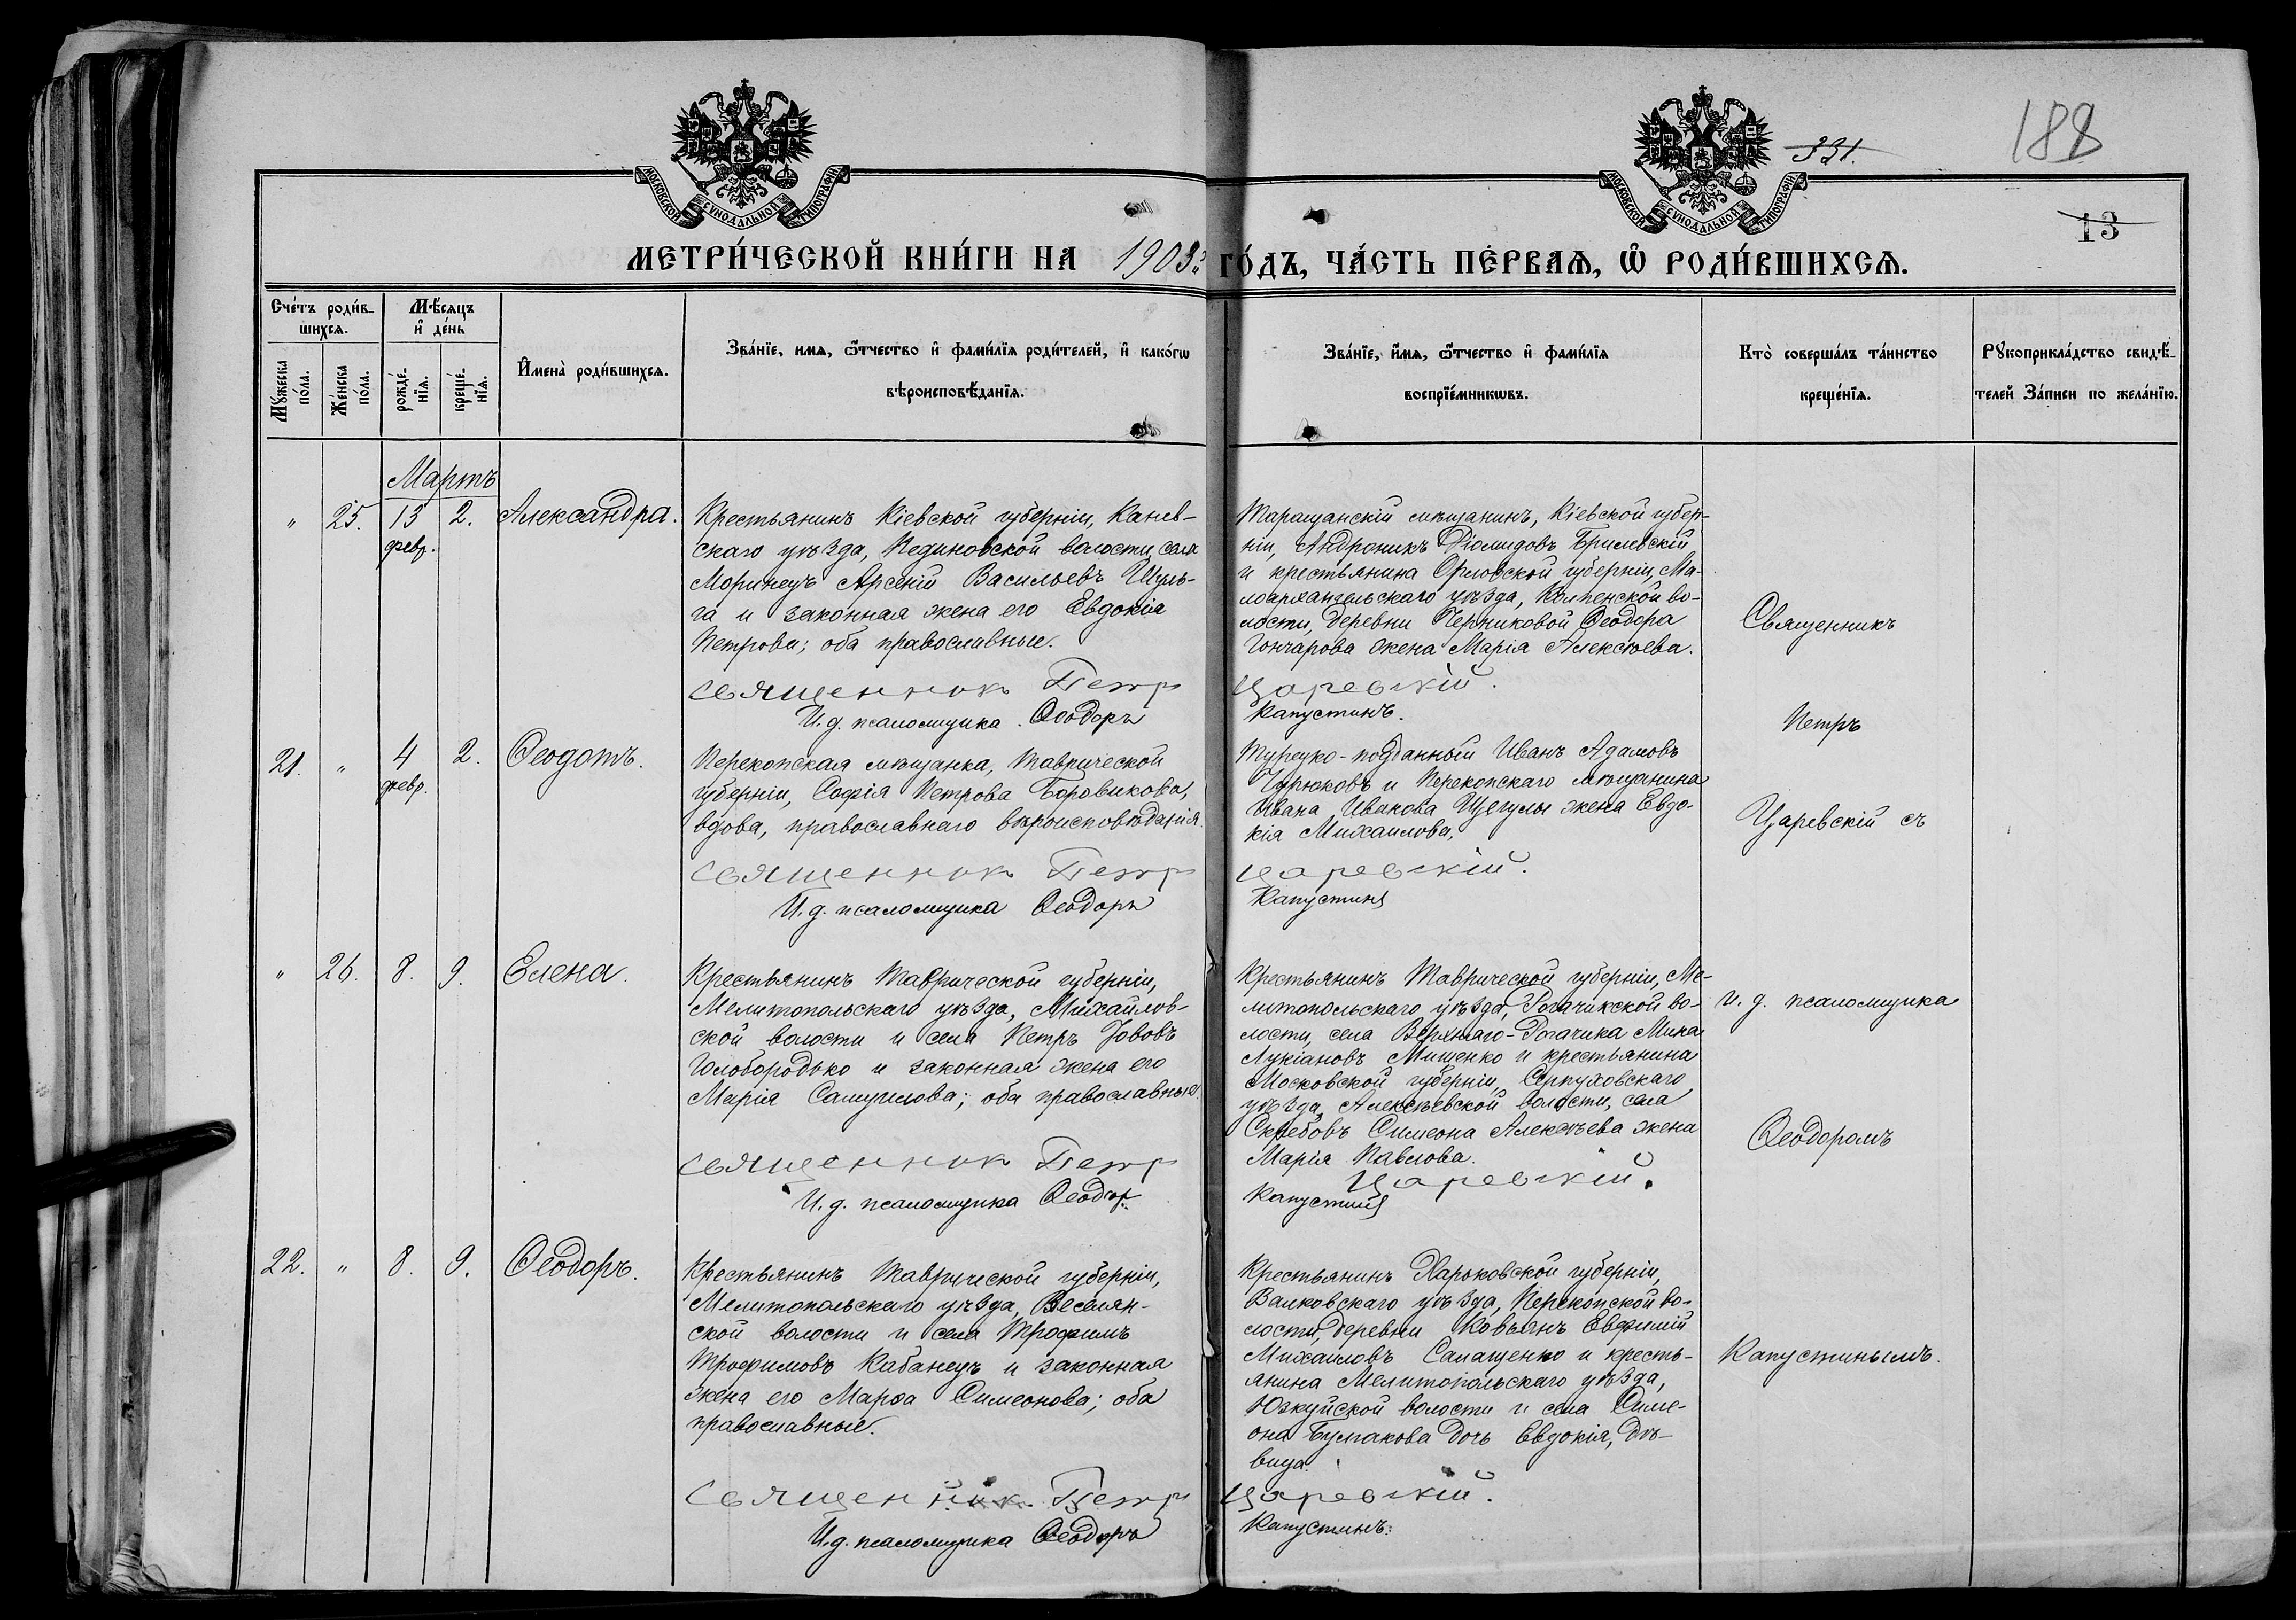 331.
188
13
МОСКОВСКОЙ СѴНОДАЛЬНОЙ ТИПОГРАФІИ
МОСКОВСКОЙ СѴНОДАЛЬНОЙ ТИПОГРАФІИ
МЕТРИ́ЧЕСКОЙ КНИ́ГИ НА 1903й ГО́ДЪ, ЧА́СТЬ ПЕ́РВАѦ, Ѡ РОДИ́ВШИХСѦ.
Сче́тъ роди́в-
шихсѧ.
Мꙋжеска по́ла.
Же́нска по́ла.
Мѣ́сѧцъ
и҆ де́нь
рожде́-
нїѧ.
креще́-
нїѧ.
И҆мена̀ роди́вшихсѧ.
Зва́нїе, имѧ, ѻ҆́тчество и҆ фами́лїѧ роди́телей, и҆ како́гѡ
вѣроисповѣ́данїѧ.
Зва́нїе, и҆́мѧ, ѻ҆́тчество и҆ фами́лїѧ
воспрїе́мникѡвъ.
Кто̀ соверша́лъ та́инство
креще́нїѧ.
Рꙋкоприкла́дство свидѣ́-
телей За́писи по жела́нїю.
Мартъ
" 25. 13 февр. 2. Александра.
Крестьянинъ Кіевской губерніи, Канев-
скаго уѣзда, Пединовской волости, села
Моринецъ Арсеній Васильевъ Шуль-
га и законная жена его Евдокія
Петрова; оба православные.
Священник Петр Царевскій.
И. д. псаломщика Ѳеодоръ Капустинъ.
Таращанскій мѣщанинъ, Кіевской губер-
ніи, Андроникъ Діомидовъ Брилевскій
и крестьянина Орловской губерніи, Ма-
лоархангельскаго уѣзда, Колпенской во-
лости, деревни Ѳеодора
Гончарова жена Марія Алексѣева.
Священникъ
Петръ
Царевскій съ
и. д. псаломщика
Ѳеодоромъ
Капустинымъ.
21. " 4 февр. 2. Ѳеодотъ.
Перекопская мѣщанка, Таврической
губерніи, Софія Петрова Боровикова,
вдова, православнаго вѣроисповѣданія.
Священник Петр Царевскій.
И. д. псаломщика Ѳеодоръ Капустинъ
Турецко-подданный Иванъ Адамовъ
Чурюковъ и Перекопскаго мѣщанина
Ивана Иванова Щегулы жена Евдо-
кія Михаилова.
" 26. 8. 9. Елена.
Крестьянинъ Таврической губерніи,
Мелитопольскаго уѣзда, Михайлов-
ской волости и села Петръ Іововъ
Голобородько и законная жена его
Марія Самуилова; оба православные.
Священник Петр Царевскій.
И. д. псаломщика Ѳеодор. Капустинъ
Крестьянинъ Таврической губерніи, Ме-
литопольскаго уѣзда, Рогачикской во-
лости, села Верхняго-Рогачика Мина
Лукіановъ Мищенко и крестьянина
Московской губерніи, Серпуховскаго
уѣзда, Алексѣевской волости, села
Симеона Алексѣева жена
Марія Павлова.
22. " 8. 9. Ѳеодоръ.
Крестьянинъ Таврической губерніи,
Мелитопольскаго уѣзда, Веселян-
ской волости и села Трофимъ
Трофимовъ Кабанецъ и законная
жена его Марѳа Симеонова; оба
православные.
Священник Петр Царевскій.
И. д. псаломщика Ѳеодоръ Капустинъ.
Крестьянинъ Харьковской губерніи,
Валковскаго уѣзда, Перекопской во-
лости, деревни Ковсянъ Евфимій
Михаиловъ Салащенко и кресть-
янина Мелитопольскаго уѣзда,
Юзкуйской волости и села Симе-
она Булгакова дочь Евдокія, дѣ-
вица.